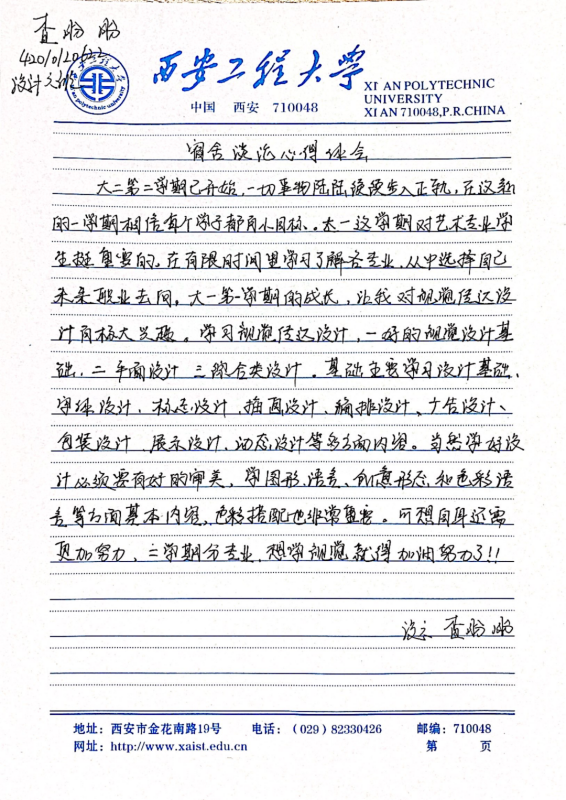 查盼盼
设计
西安工程大学
XI AN POLYTECHNIC
UNIVERSITY
XI AN 710048,P.R.CHINA
中国 西安 710048
宿舍谈论心得体会
大二第二学期已开始,一切事物陆陆续续步入正轨,在这新
的一学期相信每个学子都有小目标。大一这学期对艺术专业学
生挺重要的,在有限时间里学习了解各专业,从中选择自己
未来职业去向。大一第一学期的成长,让我对视觉传达设
计有极大兴趣。学习视觉传达设计,一好的视觉设计基
础,二平面设计 三综合类设计。基础主要学习设计基础、
字体设计、标志设计、插画设计、编排设计、广告设计、
包装设计、展示设计、动态设计等多方面内容。当然学好设
计必须要有好的审美,学图形语言、创意形态和色彩语
言等方面基本内容,色彩搭配也非常重要。可想自身还需
更加努力,二学期分专业,想学视觉就得加油努力了!!
查盼盼
地址:西安市金花南路19号 电话:(029)82330426 邮编:710048
网址:http://www.xaist.edu.cn 第 页